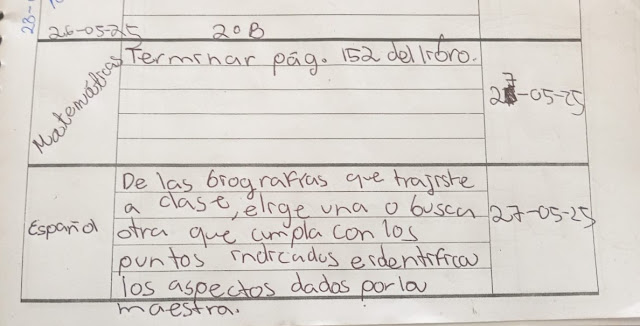 26-05-25 20B
Matemáticas Terminar pág. 152 del libro. 27-05-25
De las biografías que trajiste
a clase, elige una o busca
Español otra que cumpla con los 27-05-25
puntos indicados e identifica
los aspectos dados por la
maestra.